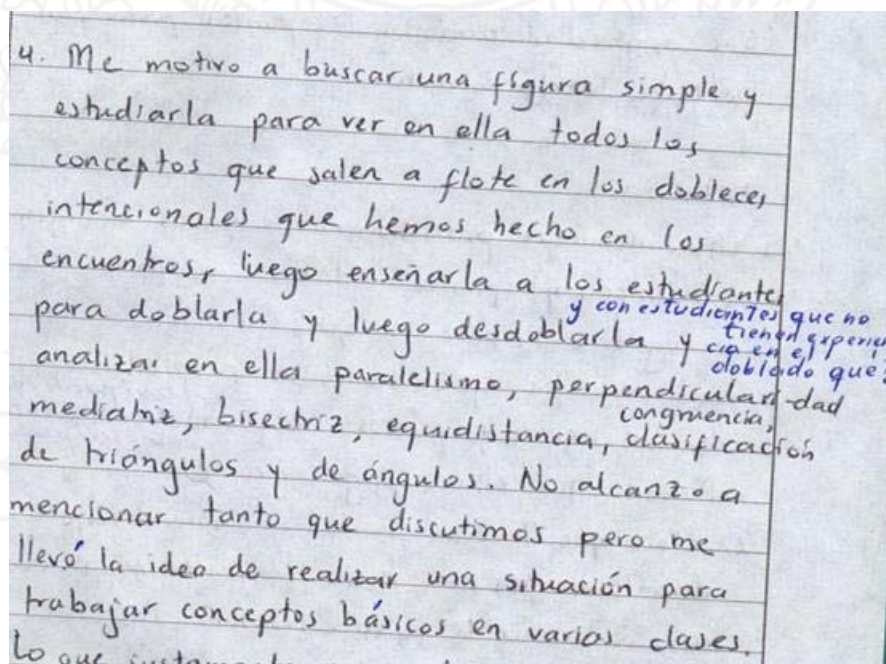 4. Me motivo a buscar una figura simple y
estudiarla para ver en ella todos los
conceptos que salen a flote en los dobleces
intencionales que hemos hecho en los
encuentros, luego enseñarla a los estudiantes
y con estudiantes que no
tienen experien
cia en el
doblado que:
para doblarla y luego desdoblarla y
analizar en ella paralelismo, perpendicularidad
congruencia,
mediatriz, bisectriz, equidistancia, clasificación
de triángulos y de ángulos. No alcanzo a
mencionar tanto que discutimos pero me
llevó la idea de realizar una situación para
trabajar conceptos básicos en varias clases.
Lo que